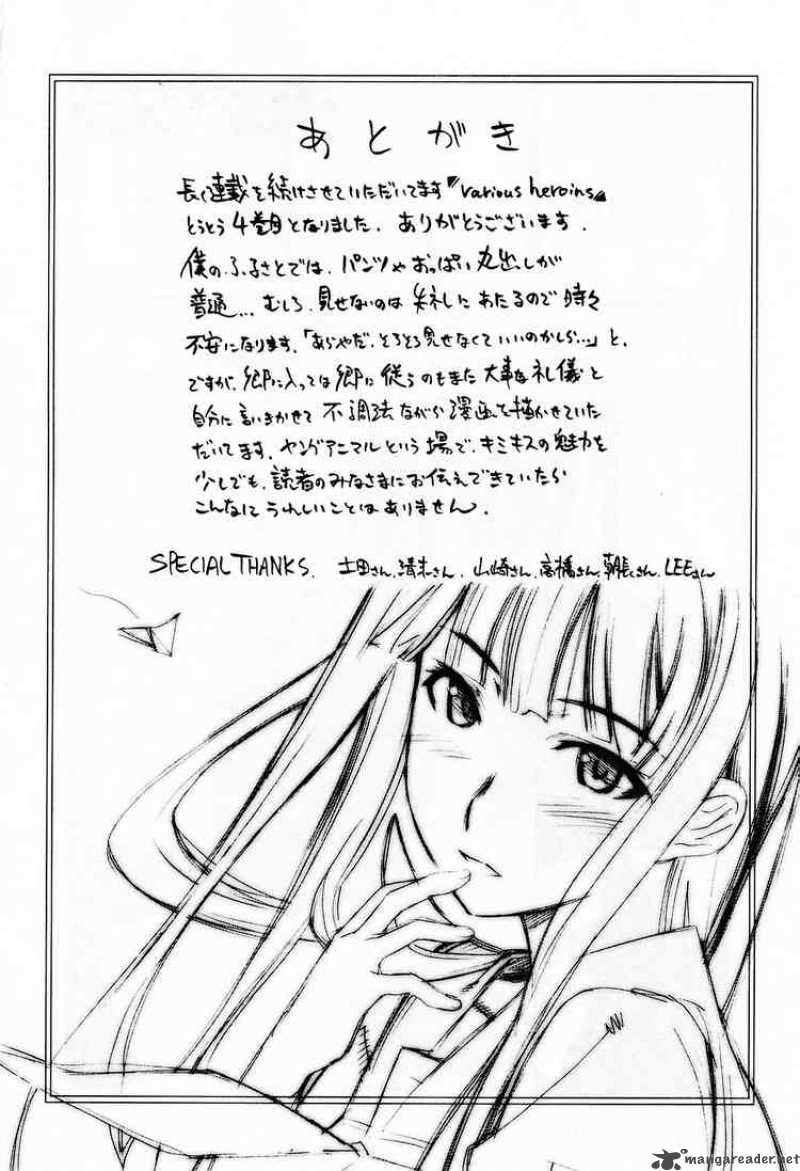 あとがき
長く連載を続けさせていただいてます『various heroins』
とうとう4巻目となりました。ありがとうございます。
僕のふるさとでは、パンツやおっぱい丸出しが
普通…むしろ、見せないのは失礼にあたるので時々
不安になります。「あらやだ、そろそろ見せなくていいのかしら…」と。
ですが、郷に入っては郷に従うのもまた大事な礼儀と
自分に言いきかせて不調法ながら漫画を描かせていた
だいてます。ヤングアニマルという場で、キミキスの魅力を
少しでも、読者のみなさまにお伝えできていたら
こんなにうれしいことはありません。
SPECIAL THANKS. 土田さん、清水さん、山崎さん、高橋さん、朝長さん、LEEさん
mangareader.net